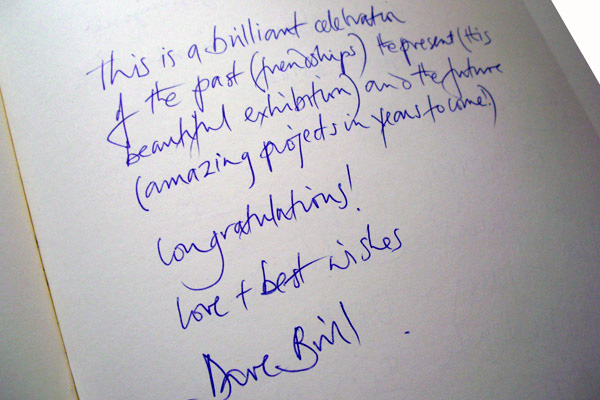 This is a brilliant celebration
of the past (friendships) the present (this
beautiful exhibition) and the future
(amazing projects in years to come!)
Congratulations!
Love + best wishes
Dave Brill